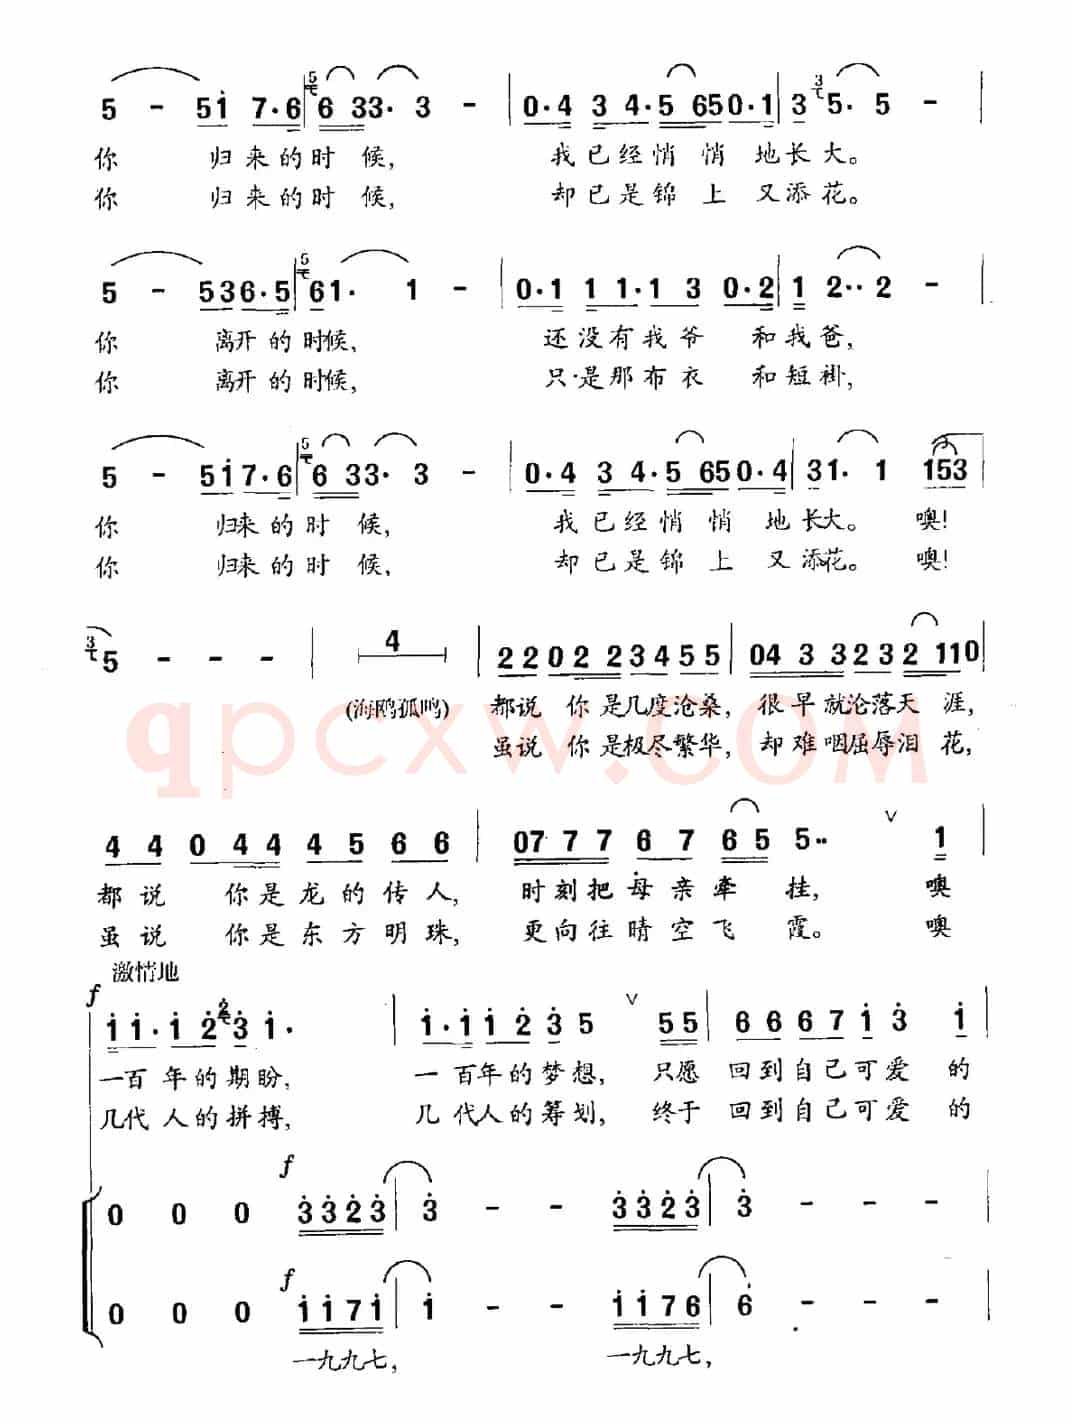 5 - 5i 7·6 | 6 33· 3 - | 0·4 3 4·5 650·1 | 3 5· 5 -
你 归来的时 候, 我已经悄 悄 地长大。
你 归来的时 候, 却已是锦 上 又添花。
5 - 536·5 | 61· 1 - | 0·1 1 1·1 3 0·2 | 1 2·· 2 -
你 离开的时候, 还没有我爷 和我爸,
你 离开的时候, 只是那布衣 和短褂,
5 - 5i7·6 | 6 33· 3 - | 0·4 3 4·5 650·4 | 31· 1 153
你 归来的时 候, 我已经悄 悄 地长大。 噢!
你 归来的时 候, 却已是锦 上 又添花。 噢!
5 - - - | 4 | 2202 23455 | 04 3 3232 110
(海鸥孤鸣) 都说 你是几度沧桑, 很早就沦落天 涯,
虽说 你是极尽繁华, 却难咽屈辱泪 花,
qpcxw.com
4 4 0 4 4 4 5 6 6 | 07 7 7 6 7 6 5 5·· ∨ 1
都说 你是龙的传人, 时刻把母亲牵 挂, 噢
虽说 你是东方明珠, 更向往晴空飞 霞。 噢
激情地
f
i i·i 2 3 i· | i·i i 2 3 5 ∨ 55 | 6 6 6 7 i 3 i
一百年的期盼, 一百年的梦想, 只愿 回到自己可爱的
几代人的拼搏, 几代人的筹划, 终于 回到自己可爱的
f
0 0 0 3323 | 3 - - 3323 | 3 - - -
f
0 0 0 ii7i | i - - ii76 | 6 - - -
一九九七, 一九九七,